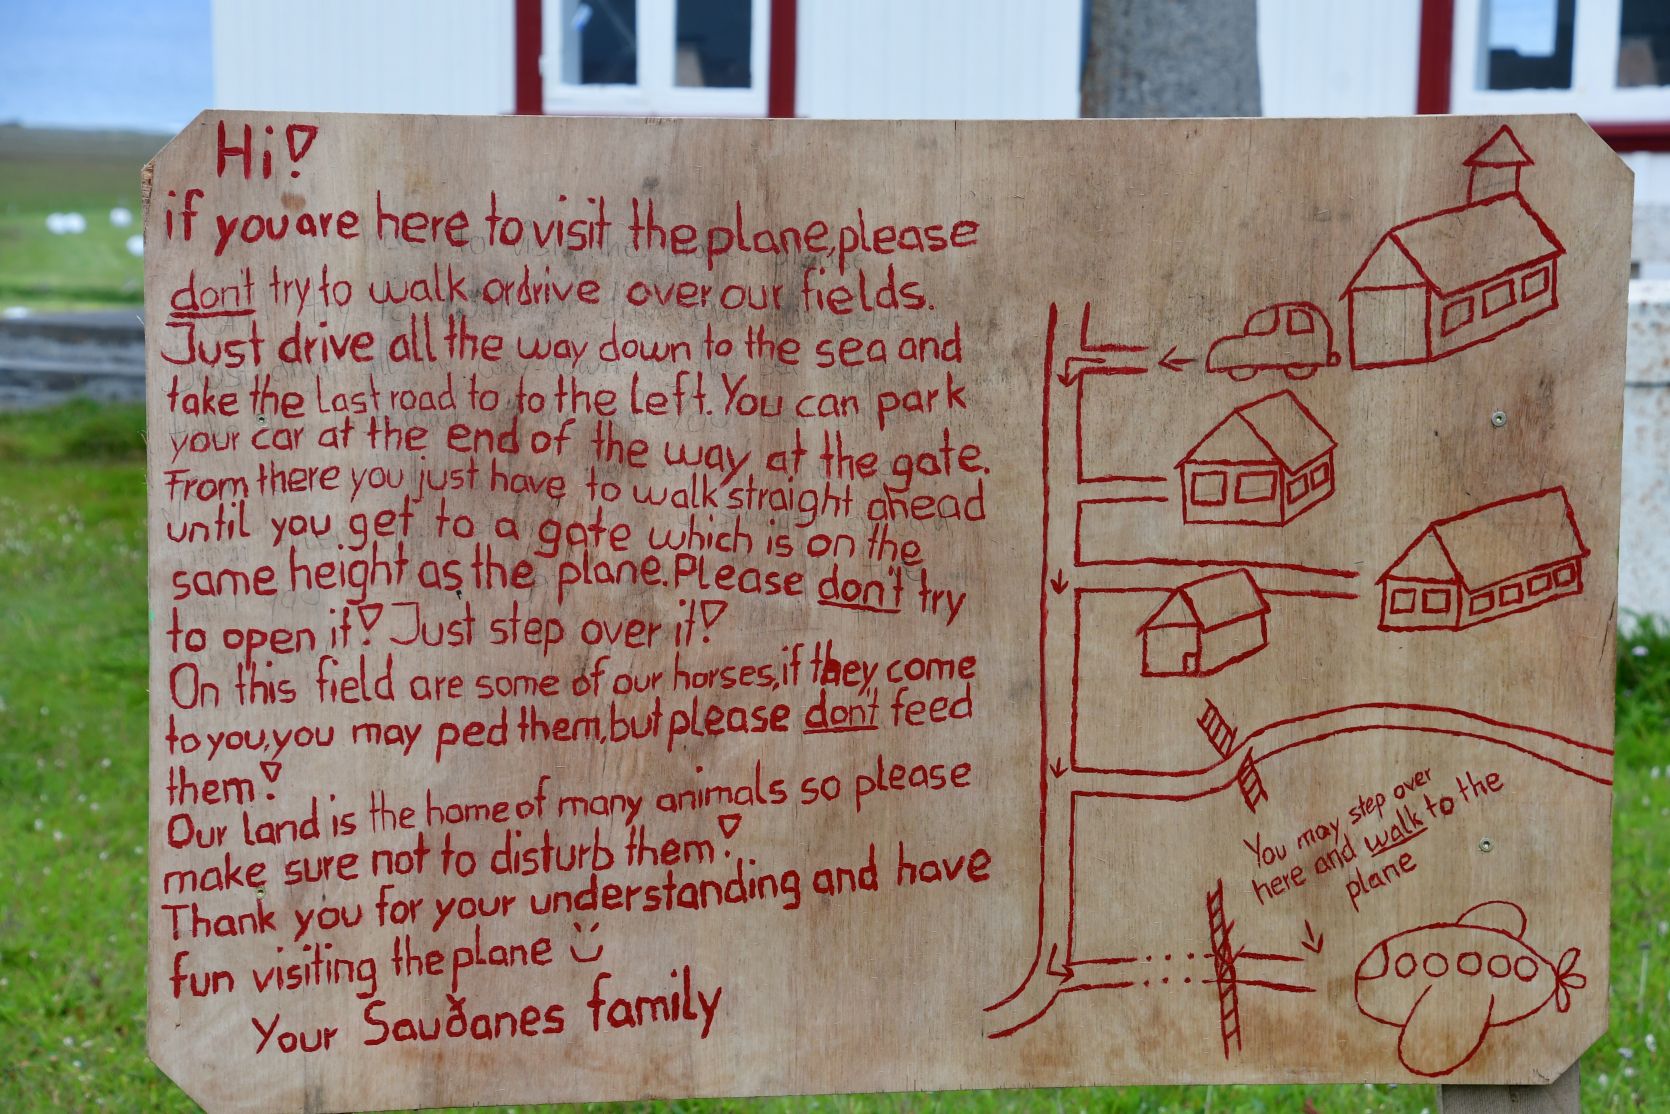 Hi!
if you are here to visit the plane, please
don't try to walk or drive over our fields.
Just drive all the way down to the sea and
take the last road to to the left. You can park
your car at the end of the way at the gate.
From there you just have to walk straight ahead
until you get to a gate which is on the
same height as the plane. Please don't try
to open it! Just step over it!
On this field are some of our horses, if they come
to you, you may ped them, but please don't feed
them!
Our land is the home of many animals so please
make sure not to disturb them!
Thank you for your understanding and have
fun visiting the plane
Your Sauðanes family
You may step over
here and walk to the
plane